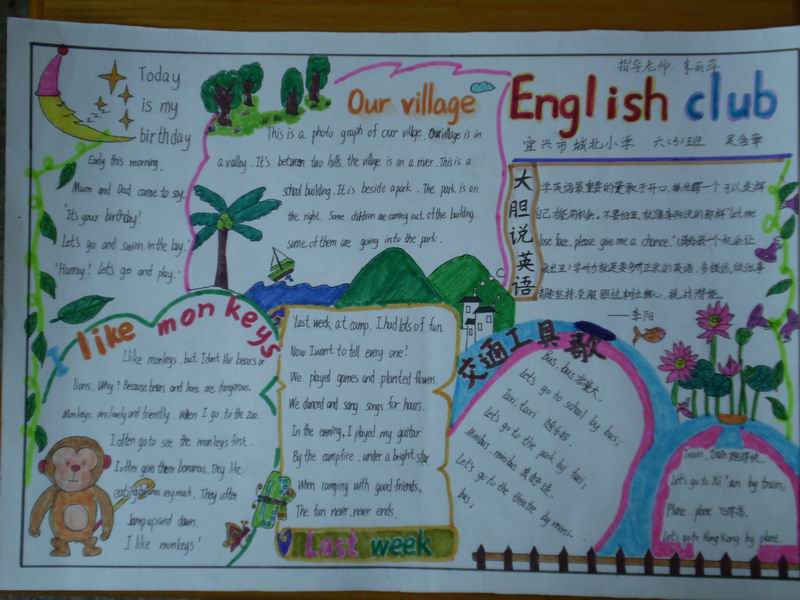 Today
is my
birthday
Early this morning.
Mum and Dad came to say.
"It's your birthday!
Let's go and swim in the bay."
"Hurray! Let's go and play."
Our village
This is a photo graph of our villge. Our village is in
a valley. It's between two hills. the village is on a river. This is a
school building. It is beside a park. The park is on
the right. Some children are coming out of the building.
some of them are going into the park.
指导老师
English club
宜兴市城北小学 六(5)班
大胆说英语
学英语最重要的是敢于开口
自己 的机会。不要怕丑, 就像李阳说的那样"Let me
lose face, please give me a chance."
的英语
挑战潜能。
——李阳
I like monkeys
I like monkeys. but I don't like bears or
lions. Why? Because bears and lions are dangerous.
Monkeys are lively and friendly. When I go to the zoo.
I often go to see the monkeys first.
I often give them bananas. They like
eating bananas very much. They often
Jump up and down.
I like monkeys!
Last week at camp. I had lots of fun.
Now I want to tell every one!
We played games and planted flowers.
We danced and sang songs for hours.
In the evening, I played my guitar
By the campfire. under a bright star.
When camping with good friends,
The fun never, never ends.
Last week
交通工具歌
Bus, bus
Let's go to school by bus;
Taxi, taxi
Let's go to the park by taxi;
Minibus, minibus
Let's go to the theatre by mini-
bus;
Train, train
Let's go to Xi'an by train;
Plane, plane
Let's go to Hong Kong by plane.